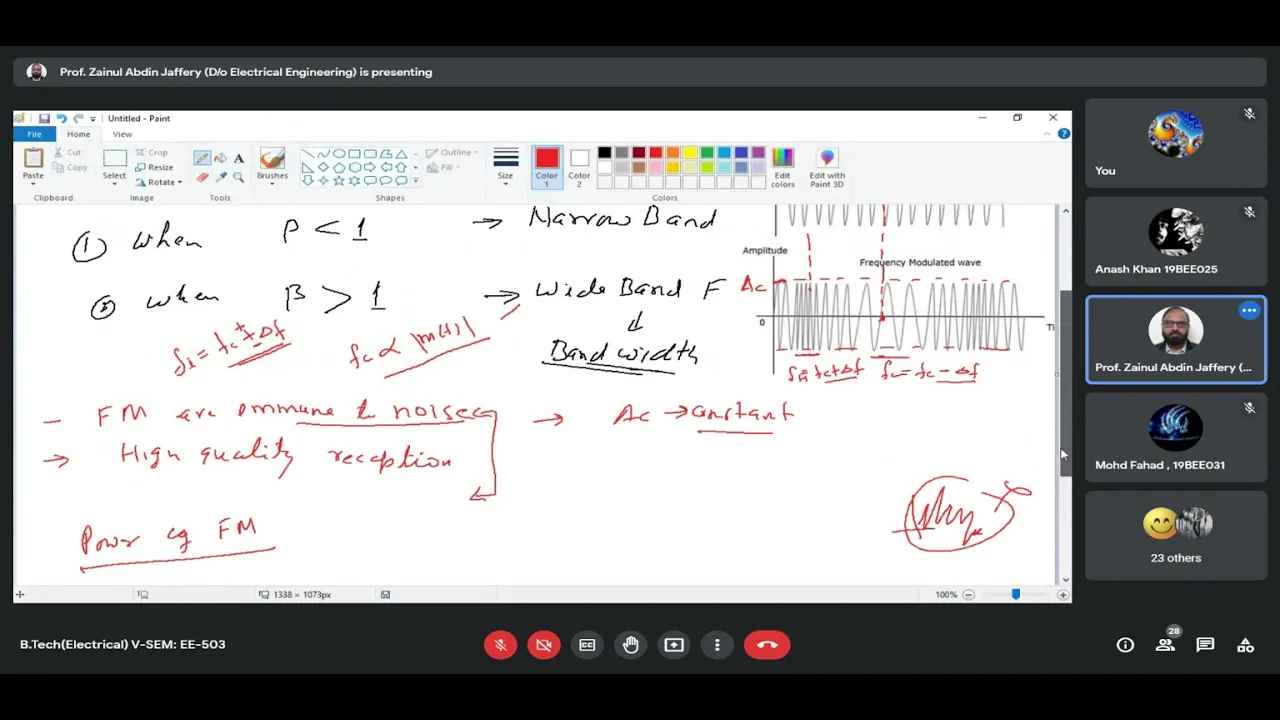 Prof. Zainul Abdin Jaffery (D/o Electrical Engineering) is presenting
Untitled - Paint
File Home View
Paste
Cut
Copy
Clipboard
Select
Crop
Resize
Rotate
Image
Tools
Brushes
Shapes
Outline
Fill
Size
Color 1
Color 2
Colors
Edit colors
Edit with Paint 3D
① When β < 1 → Narrow Band
② When β > 1 → Wide Band F
Band width
fi = fc ± Δf
fc ∝ |m(t)|
Amplitude
Frequency Modulated wave
Ac
0
Ti
fi = fc + Δf
fi = fc - Δf
- FM are immune to noise → Ac → constant
→ High quality reception
Power of FM
1338 × 1073px
100%
You
Anash Khan 19BEE025
Prof. Zainul Abdin Jaffery (...
Mohd Fahad , 19BEE031
23 others
B.Tech(Electrical) V-SEM: EE-503
28